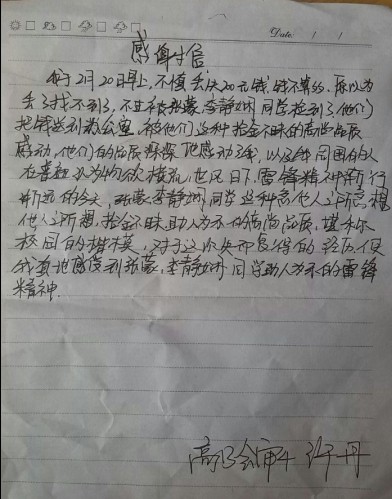 Date: / /
感谢信
我于2月20日早上,不慎丢失20元钱,钱不算多,原以为
丢了找不到了,不且被张蒙,李静娴同学捡到了,他们
把钱送到办公室,被他们这种拾金不昧的高尚品质
感动,他们的品质深深地感动了我,以及我周围的人
在喜欢 物欲横流,世风日下,雷锋精神渐行
渐远的今天,张蒙,李静娴同学这种急他人之所急,想
他人之所想,拾金不昧,助人为乐的高尚品质,堪称
校园的楷模,对于这次失而复得的经历,使
我真地感受到张蒙,李静娴同学助人为乐的雷锋
精神.
高 会审4 许丹